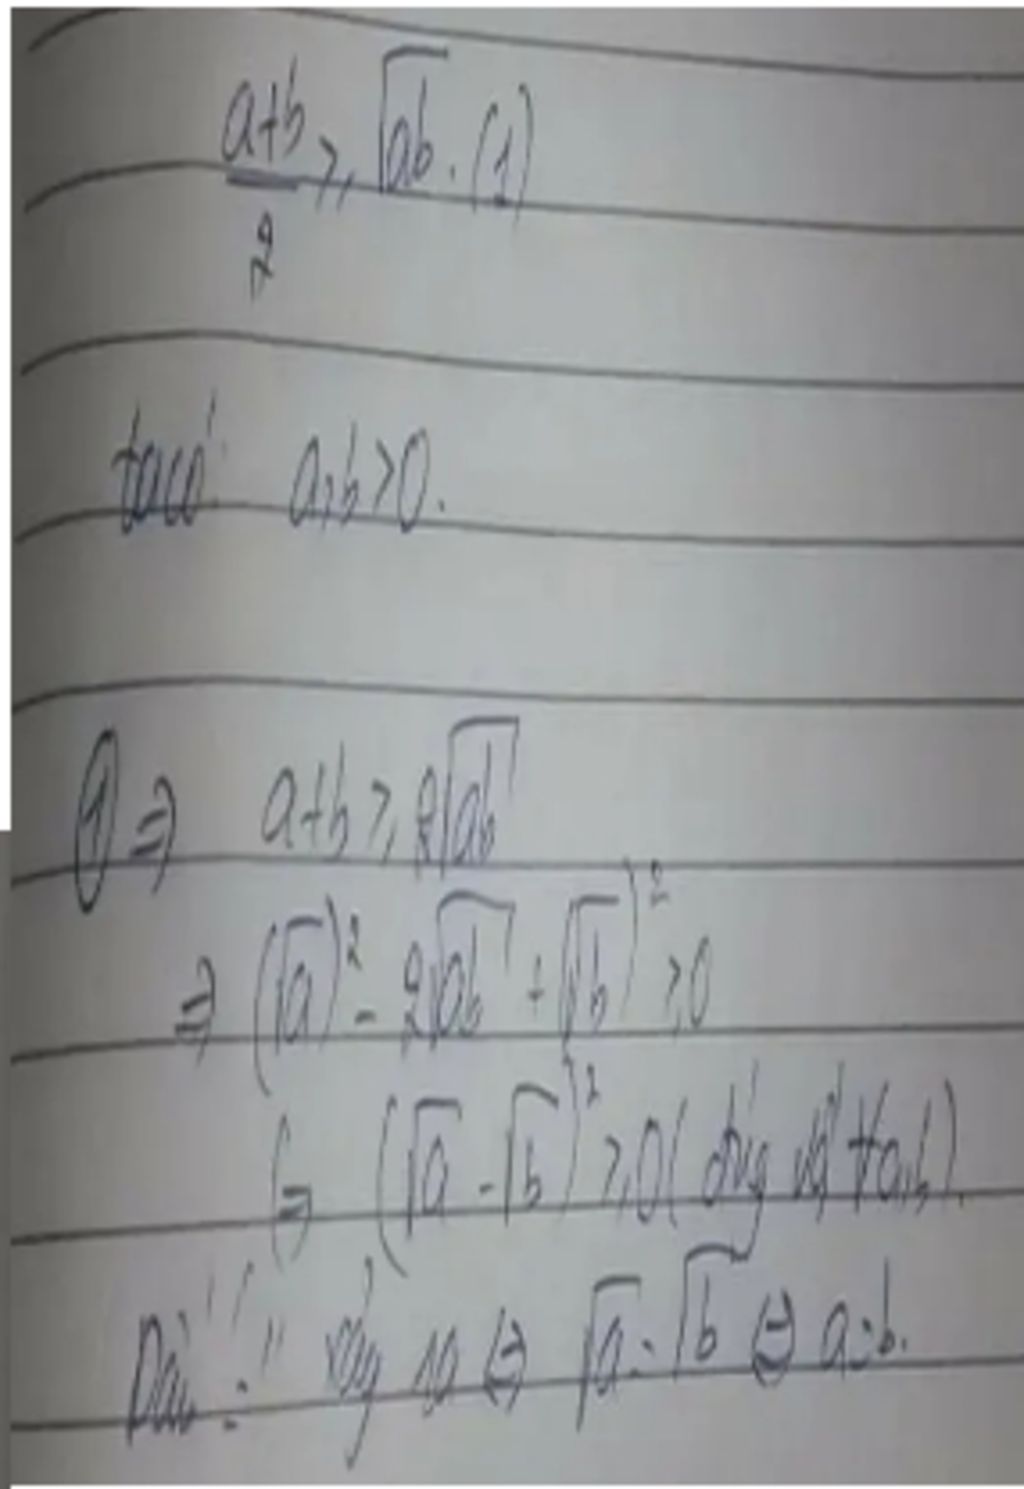 a+b/2 ≥ √ab. (1)
ta có: a,b>0.
(1) ⇒ a+b ≥ 2√ab
⇒ (√a)² - 2√ab + (√b)² ≥ 0
⇔ (√a - √b)² ≥ 0 (đúng với ∀a,b).
Dấu "=" xảy ra ⇔ √a = √b ⇔ a=b.